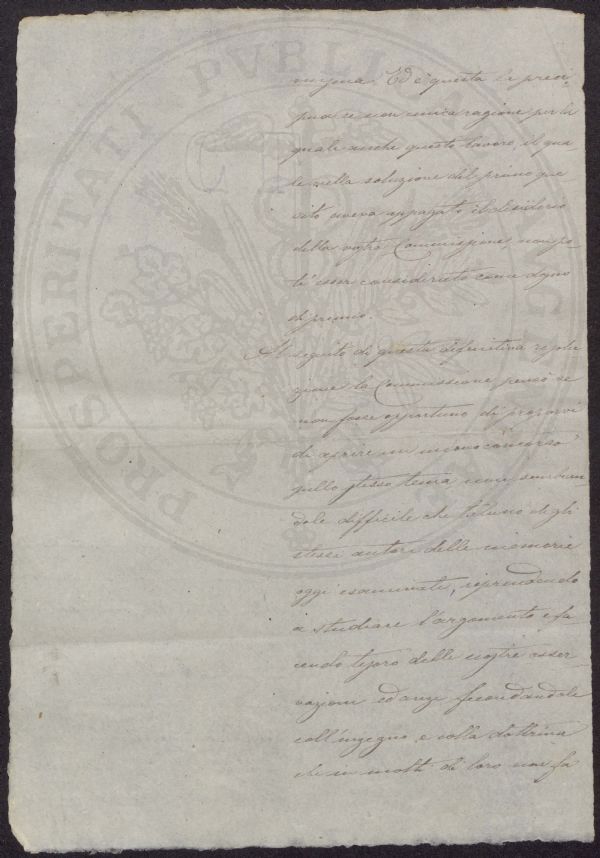 Ed è questa la preci-
pua se non unica ragione per la
quale anche questo lavoro, il qua
le nella soluzione del primo que
sito aveva appagato il desiderio
della vostra Commissione, non po
té esser considerato come degno
di premio.
A seguito di questa definitiva
zione la Commissione pensò se
non fosse opportuno di proporvi
di aprire un nuovo concorso
sullo stesso tema non sembran
dole difficile che taluno degli
stessi autori delle memorie
oggi esaminate, riprendendo
a studiare l'argomento e fa
cendo tesoro delle nostre osser
vazioni ed anzi fecondandole
coll'ingegno e colla dottrina
che in molti di loro non fa
PROSPERITATI PVBLICAE